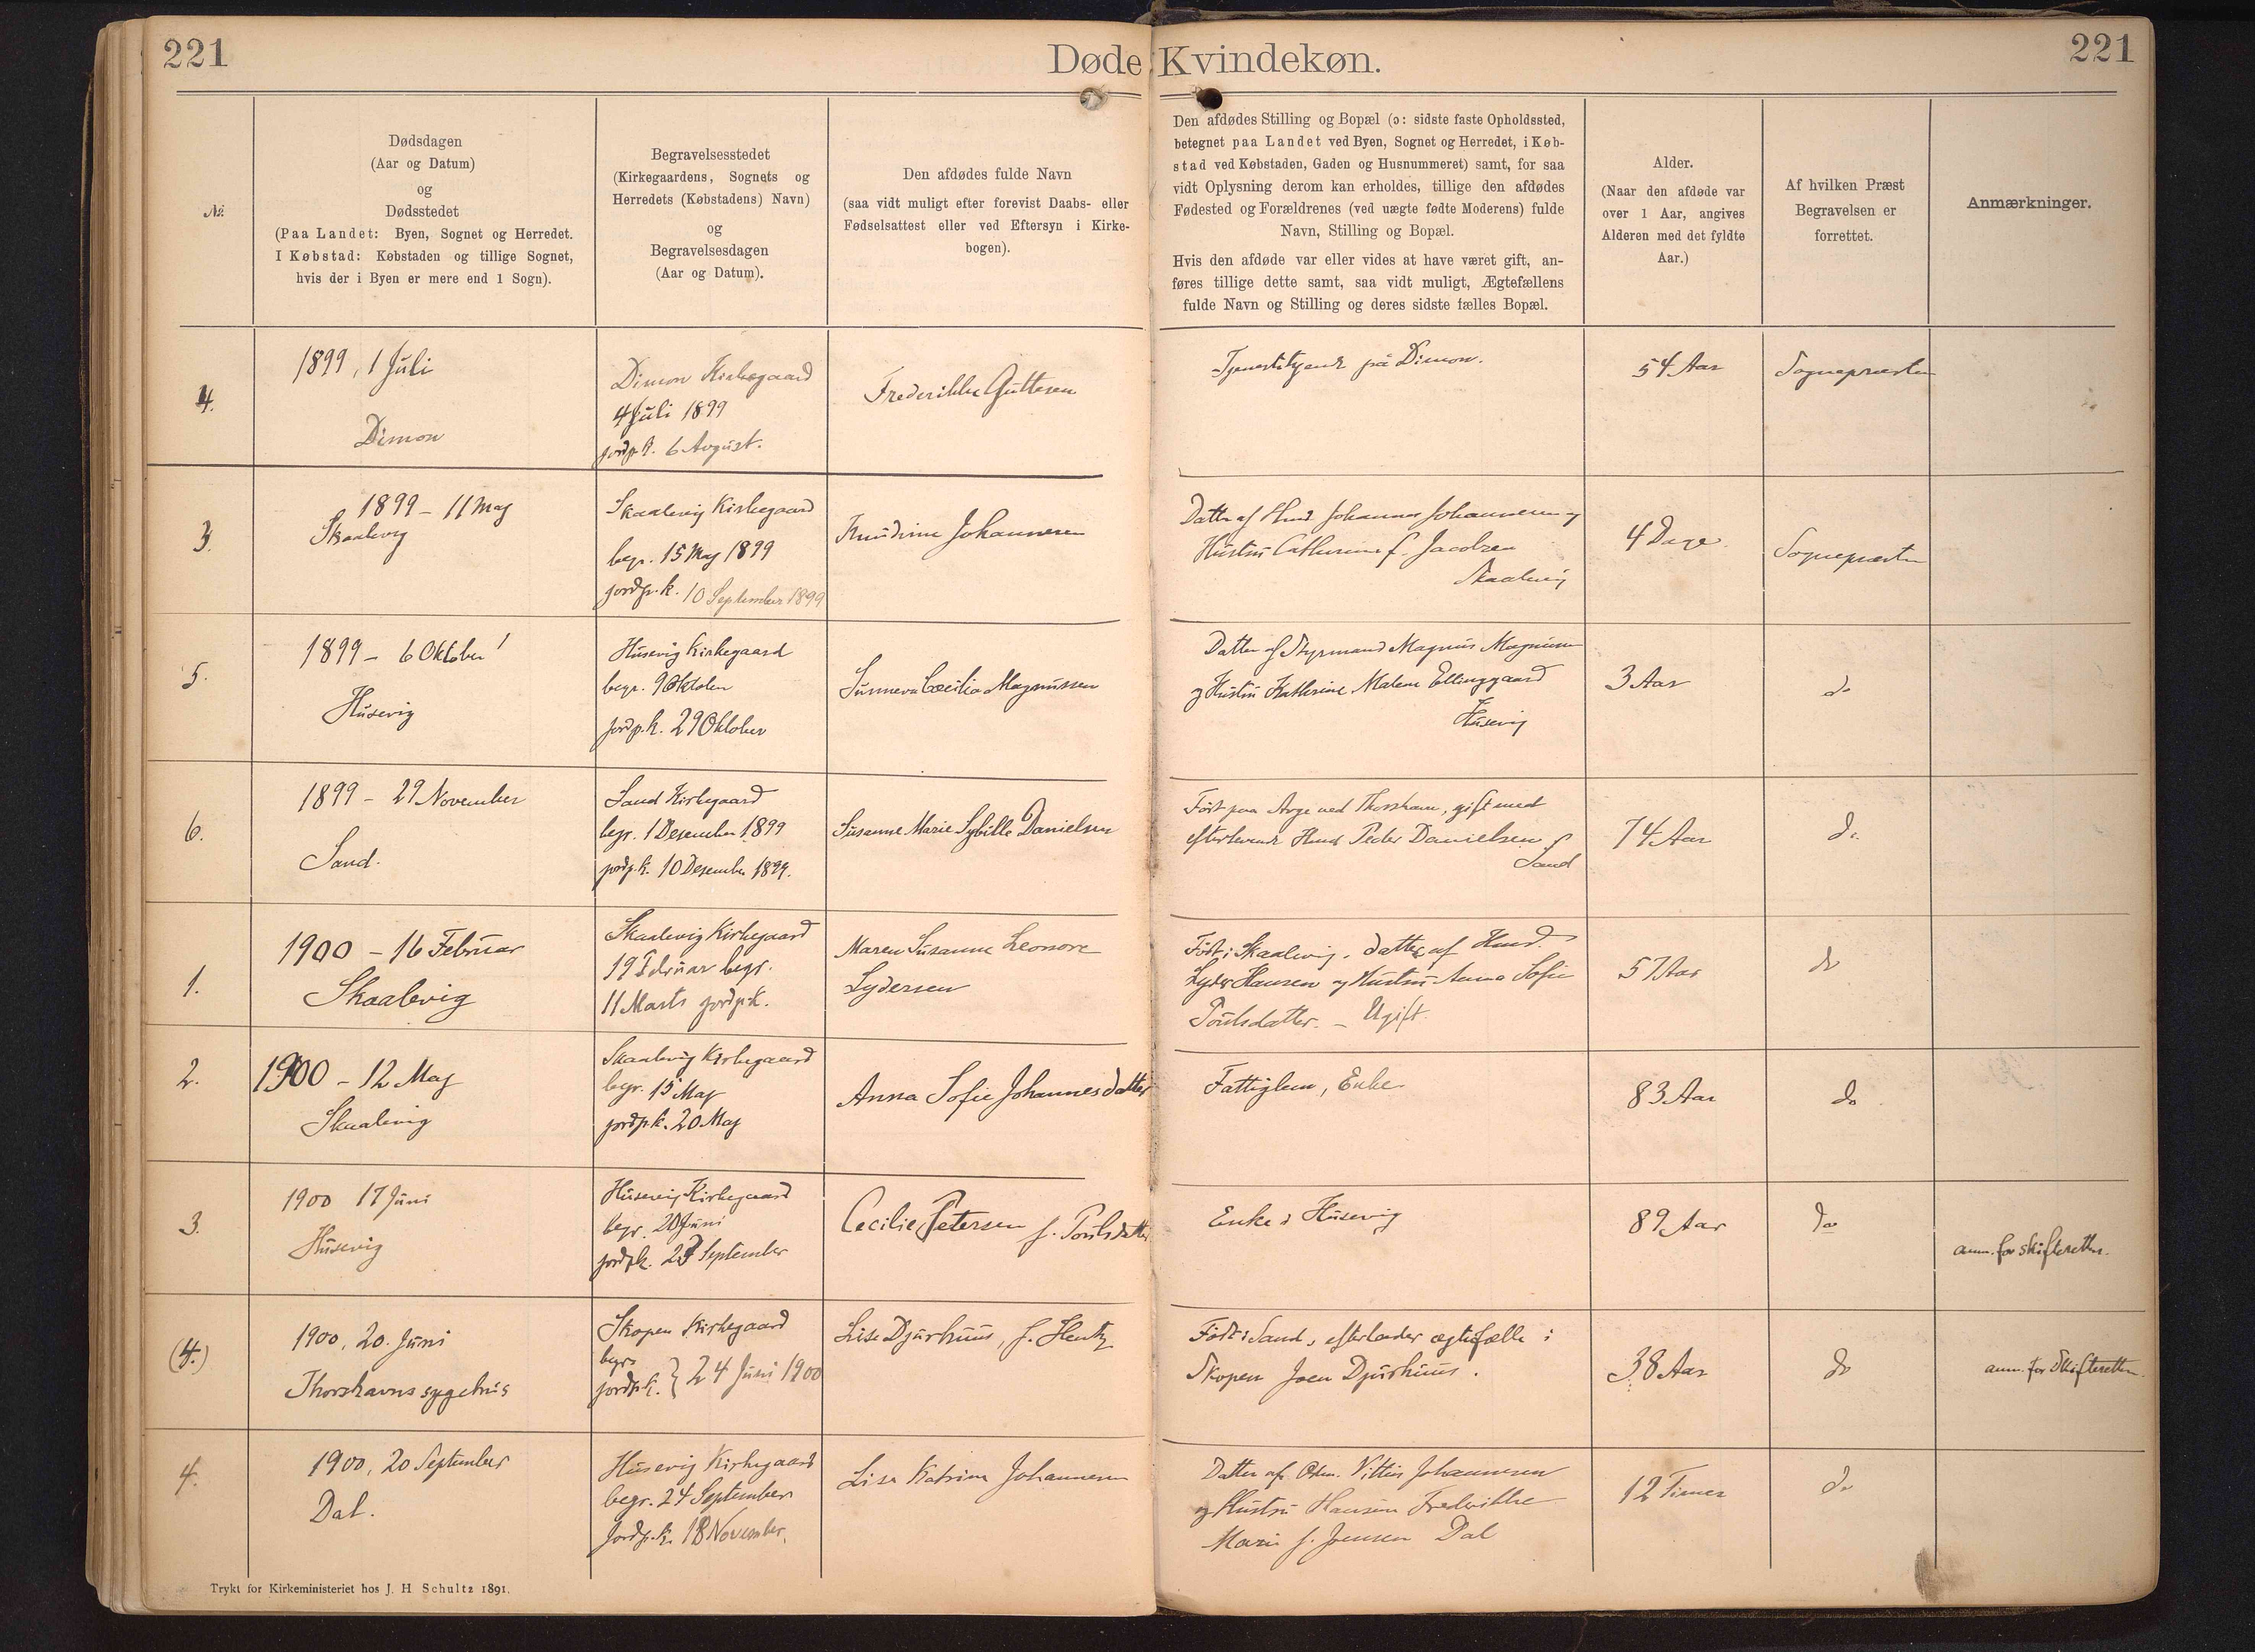 221
Døde Kvindekøn.
221
№.
Dødsdagen
(Aar og Datum)
og
Dødsstedet
(Paa Landet: Byen, Sognet og Herredet.
I Købstad: Købstaden og tillige Sognet,
hvis der i Byen er mere end 1 Sogn).
Begravelsesstedet
(Kirkegaardens, Sognets og
Herredets (Købstadens) Navn)
og
Begravelsesdagen
(Aar og Datum).
Den afdødes fulde Navn
(saa vidt muligt efter forevist Daabs- eller
Fødselsattest eller ved Eftersyn i Kirke-
bogen).
Den afdødes Stilling og Bopæl (ɔ: sidste faste Opholdssted,
betegnet paa Landet ved Byen, Sognet og Herredet, i Køb-
stad ved Købstaden, Gaden og Husnummeret) samt, for saa
vidt Oplysning derom kan erholdes, tillige den afdødes
Fødested og Forældrenes (ved uægte fødte Moderens) fulde
Navn, Stilling og Bopæl.
Hvis den afdøde var eller vides at have været gift, an-
føres tillige dette samt, saa vidt muligt, Ægtefællens
fulde Navn og Stilling og deres sidste fælles Bopæl.
Alder.
(Naar den afdøde var
over 1 Aar, angives
Alderen med det fyldte
Aar.)
Af hvilken Præst
Begravelsen er
forrettet.
Anmærkninger.
4.
1899, 1 Juli
Dimon
Dimon Kirkegaard
4 Juli 1899
jordp. k. 6 Avgust.
Frederikke Guttesen
Tjenestetyende på Dimon.
54 Aar
Sognepræsten
3.
1899 - 11 Maj
Skaalevig
Skaalevig Kirkegaard
begr. 15 Maj 1899
jordp. k. 10 September 1899
Knudrine Johannesen
Datter af Hmd. Johannes Johannesen og
Hustru Cathrine f. Jacobsen
Skaalevig
4 Dage.
Sognepræsten
5.
1899 - 6 Oktober
Husevig
Husevig Kirkegaard
begr. 9 Oktober
jordp. k. 29 Oktober
Sunneva Cecilia Magnussen
Datter af Styrmand Magnus Magnussen
og Hustru Kathrine Malene Ellinggaard
Husevig
3 Aar
do
6.
1899 - 29 November
Sand.
Sand Kirkegaard
begr. 1 Desember 1899
jordp. k. 10 Desember 1899.
Susanne Marie Sybille Danielsen
Født paa Arge ved Thorshavn, gift med
efterlevende Hmd. Peder Danielsen
Sand
74 Aar
do.
1.
1900 - 16 Februar
Skaalevig
Skaalevig Kirkegaard
19 Februar begr.
11 Marts jordp. k.
Maren Susanne Leonore
Lydersen
Født i Skaalevig. datter af Hmd.
Lyder Hansen og Hustru Anna Sofie
Poulsdatter. - Ugift.
57 Aar
do
2.
1900 - 12 Maj
Skaalevig
Skaalevig Kirkegaard
begr. 15 Maj
jordp. k. 20 Maj
Anna Sofie Johannesdatter
Fattiglem, Enke
83 Aar
do
3.
1900 17 Juni
Husevig
Husevig Kirkegaard
begr. 20 Juni
jordp. k. 23 September
Cecilie Petersen f. Poulsdatter
Enke i Husevig
89 Aar
do
anm. for Skifteretten.
(4.)
1900, 20. Juni
Thorshavns sygehus
Skopen Kirkegaard
begr.
jordp. k. } 24 Juni 1900
Lise Djurhuus, f. Hentz
Født i Sand, efterlader ægtefælle i
Skopen Joen Djurhuus.
38 Aar
do
anm. for Skifteretten.
4.
1900, 20 September
Dal.
Husevig Kirkegaard
begr. 24 September
Jordp. k. 18 November.
Lisa Katrina Johannesen
Datter af Hmd. Vittus Johannesen
og Hustru Hansine Frederikke
Marie f. Joensen Dal
12 Timer
do
Trykt for Kirkeministeriet hos J. H Schultz 1891.